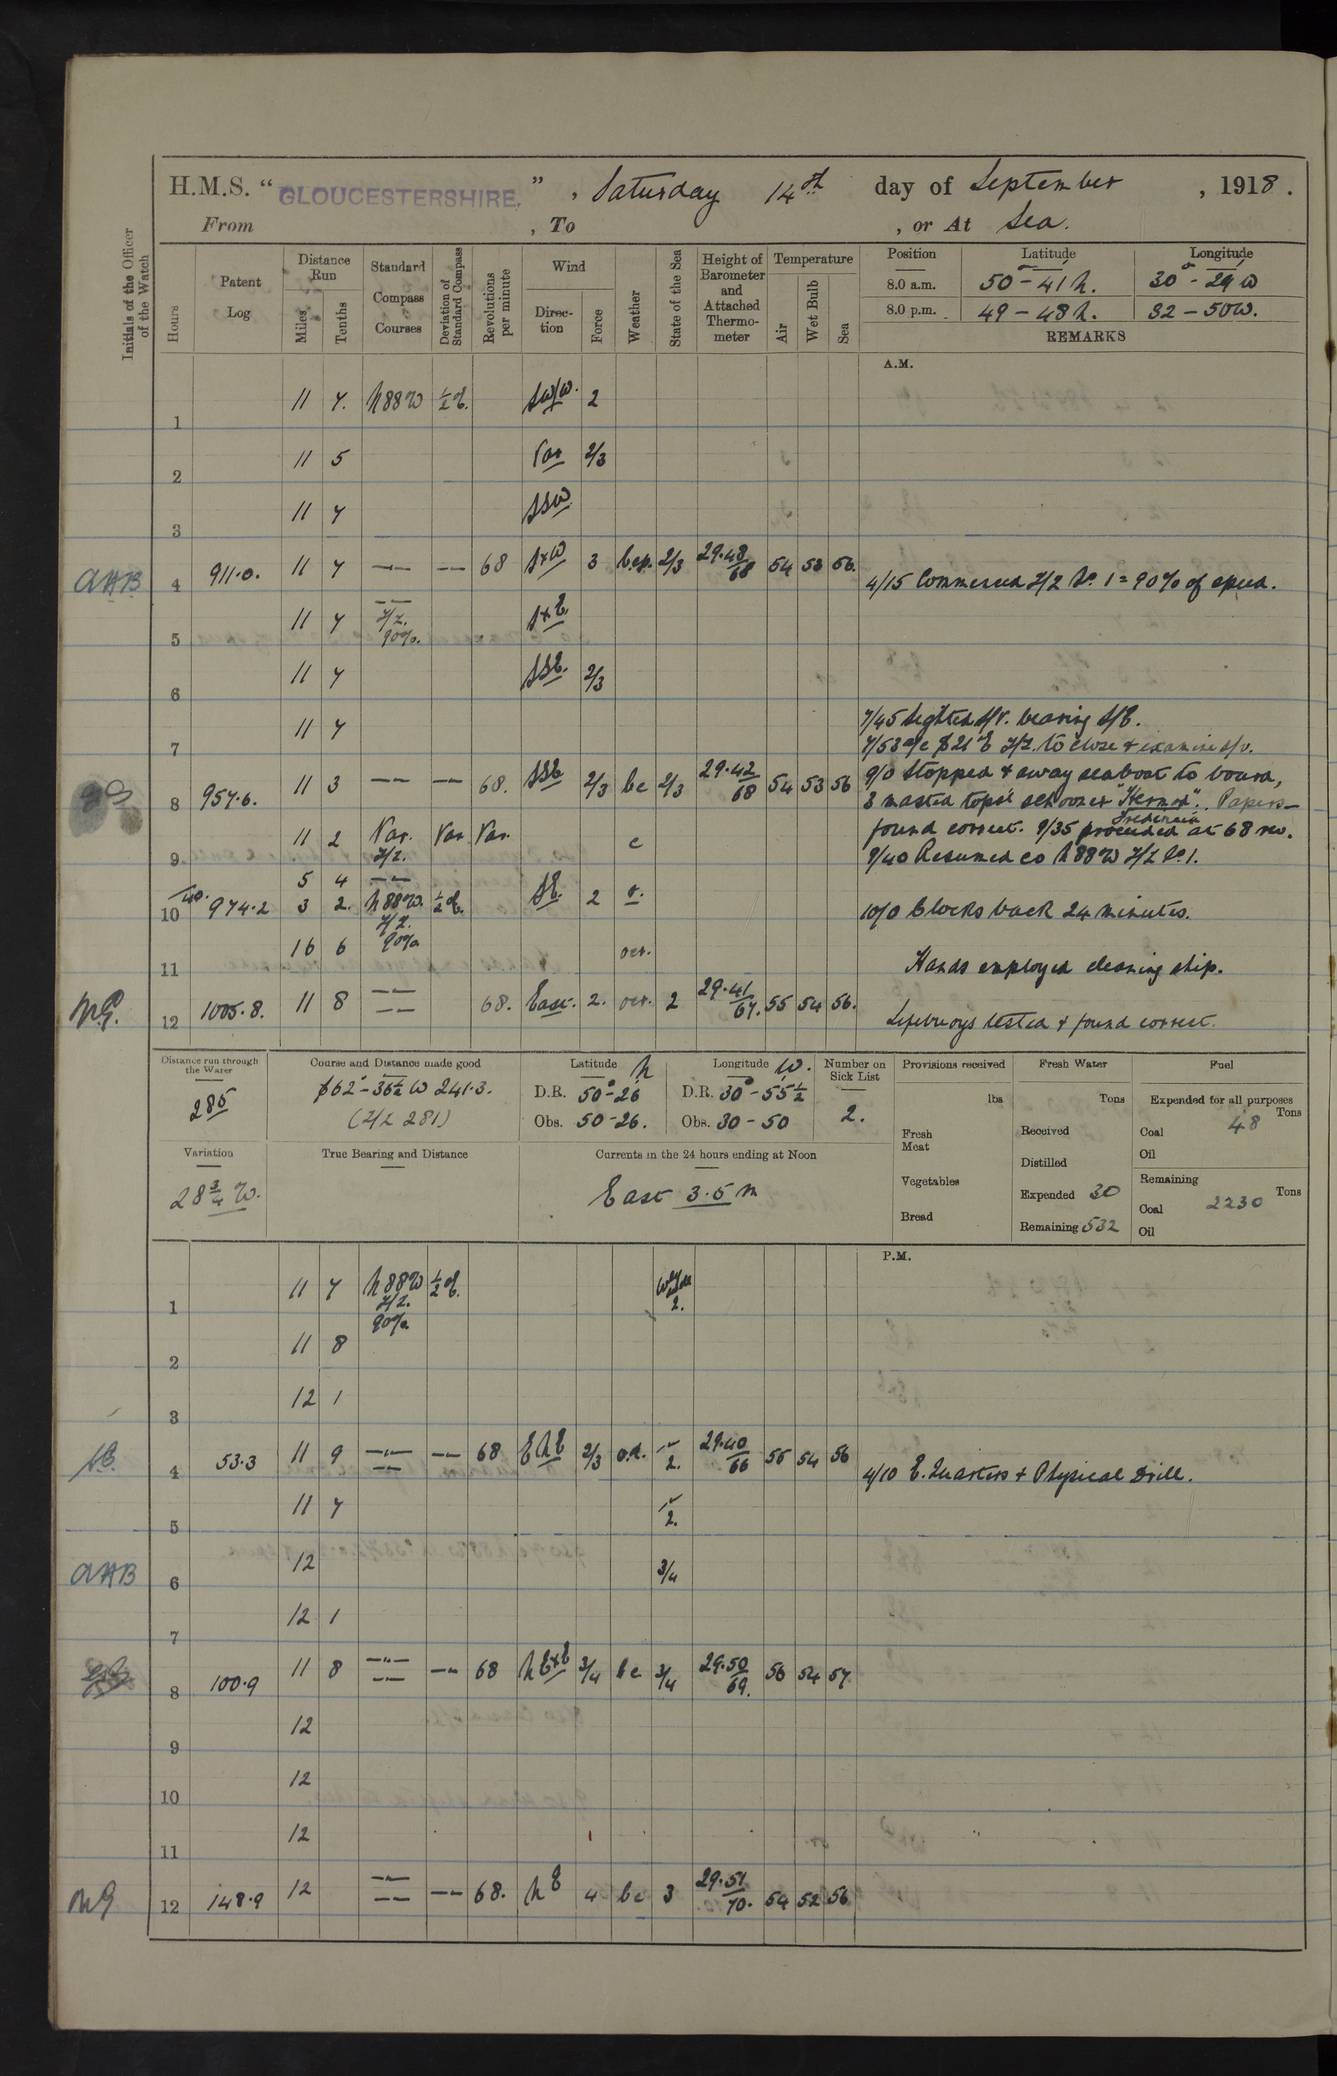 H.M.S. "GLOUCESTERSHIRE.", Saturday 14th day of September, 1918.
From , To , or At Sea.
Initials of the Officer of the Watch
Hours
Patent Log
Distance Run
Miles
Tenths
Standard Compass Courses
Deviation of Standard Compass
Revolutions per minute
Wind
Direction
Force
Weather
State of the Sea
Height of Barometer and Attached Thermometer
Temperature
Air
Wet Bulb
Sea
Position Latitude Longitude
8.0 a.m. 50° - 41' N. 30° - 29' W
8.0 p.m. 49 - 48 N. 32 - 50 W.
REMARKS
A.M.
1 11 7. N88W ½E. SW/W. 2
2 11 5 Var 2/3
3 11 7 SSW
AHB 4 911.0. 11 7 —"— —"— 68 SxW 3 b.c.p. 2/3 29.48/68 54 53 56.
4/15 Commenced Z/Z No. 1 = 90% of speed.
5 11 7 —"— Z/Z. 90%. SxE.
6 11 7 SSE. 2/3
7 11 7
7/45 Sighted S/V. bearing S/E.
7/53 a/c S21°E Z/Z. to close & examine s/v.
8 957.6. 11 3 —"— —"— 68. SSE 2/3 bc 2/3 29.42/68 54 53 56
9/0 Stopped & away seaboat to board,
3 masted tops'l schooner "Hermod". Papers
Fredericia
found correct. 9/35 proceeded at 68 rev.
9 11 2 Var. Z/Z. Var Var. c
9/40 Resumed co N88W Z/Z No. 1.
5 4 —"—
10 974.2 3 2. N88W. Z/Z. 90% ½E. SE. 2 r.
10/0 Clocks back 24 minutes.
11 16 6 ocr.
Hands employed cleaning ship.
12 1005.8. 11 8 —"— 68. East. 2. ocr. 2 29.41/67. 55 54 56.
Lifebuoys tested & found correct.
Distance run through the Water
285
Course and Distance made good
S62° - 36½ W 241.3.
(Z/Z 281)
Latitude N
D.R. 50° - 26
Obs. 50 - 26.
Longitude W.
D.R. 30° - 55½
Obs. 30 - 50
Number on Sick List
2.
Provisions received
lbs
Fresh Meat
Vegetables
Bread
Fresh Water
Tons
Received
Distilled
Expended 30
Remaining 532
Fuel
Expended for all purposes
Tons
Coal 48
Oil
Remaining
Tons
Coal 2230
Oil
Variation
28¾ W.
True Bearing and Distance
Currents in the 24 hours ending at Noon
East 3.5 m
P.M.
1 11 7 N88W Z/Z. 90% ½E. 2.
2 11 8
3 12 1
4 53.3 11 9 —"— —"— 68 ENE 2/3 o.d. 2. 29.40/66 55 54 56
4/10 E. Quarters & Physical Drill.
5 11 7 2.
AHB 6 12 3/4
7 12 1
8 100.9 11 8 —"— —"— 68 NExE 3/4 bc 3/4 29.50/69. 56 54 57
9 12
10 12
11 12
12 148.9 12 —"— —"— 68. NE 4 bc 3 29.51/70. 54 52 56